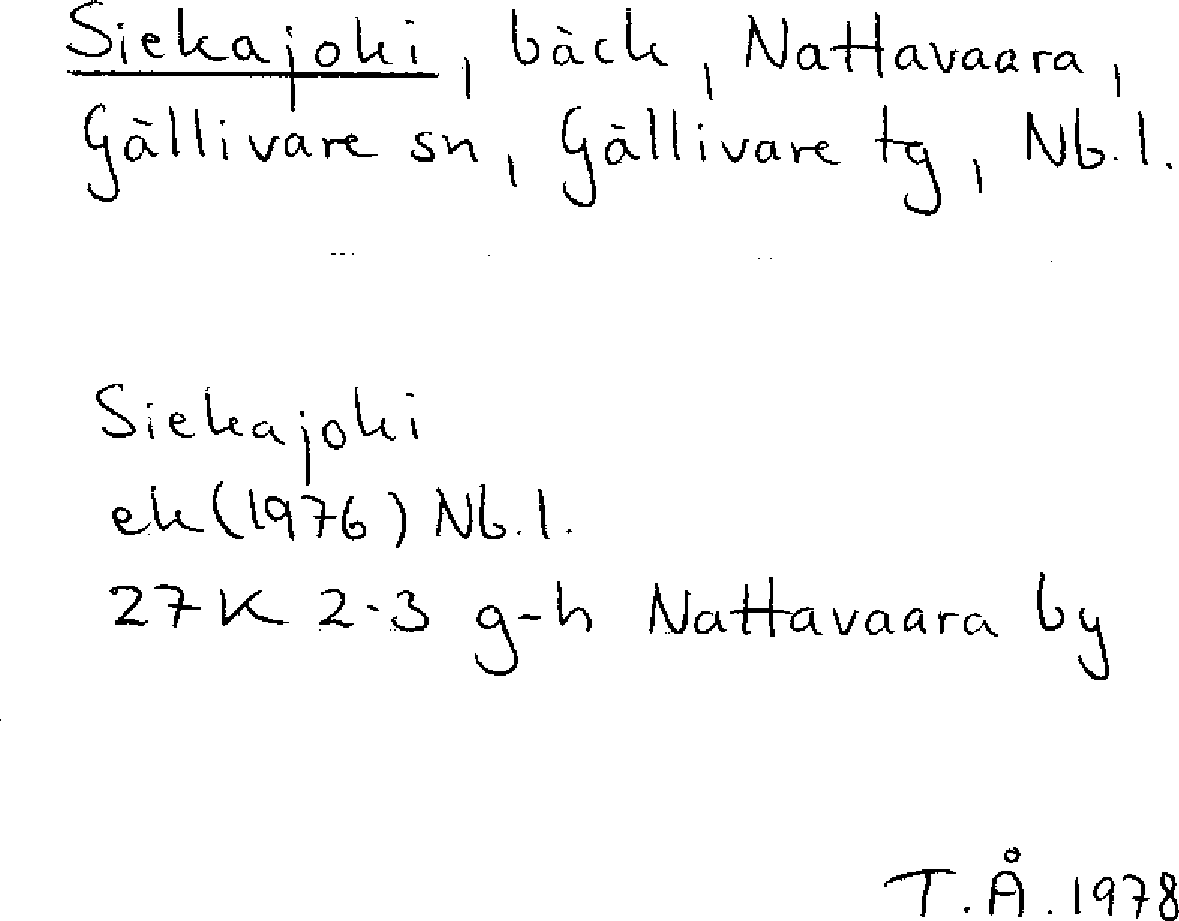 Siekajoki, bäck, Nattavaara,
Gällivare sn, Gällivare tg, Nb.l.
Siekajoki
ek(1976) Nb.l.
27K 2-3 g-h Nattavaara by
T.Å.1978